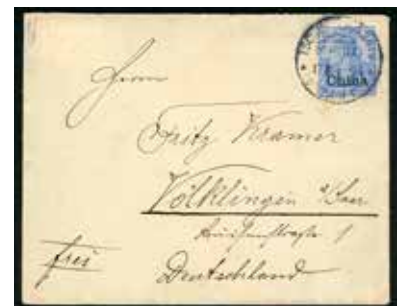 China
Herrn
Fritz Kramer
Völklingen a/Saar
1
frei
Deutschland